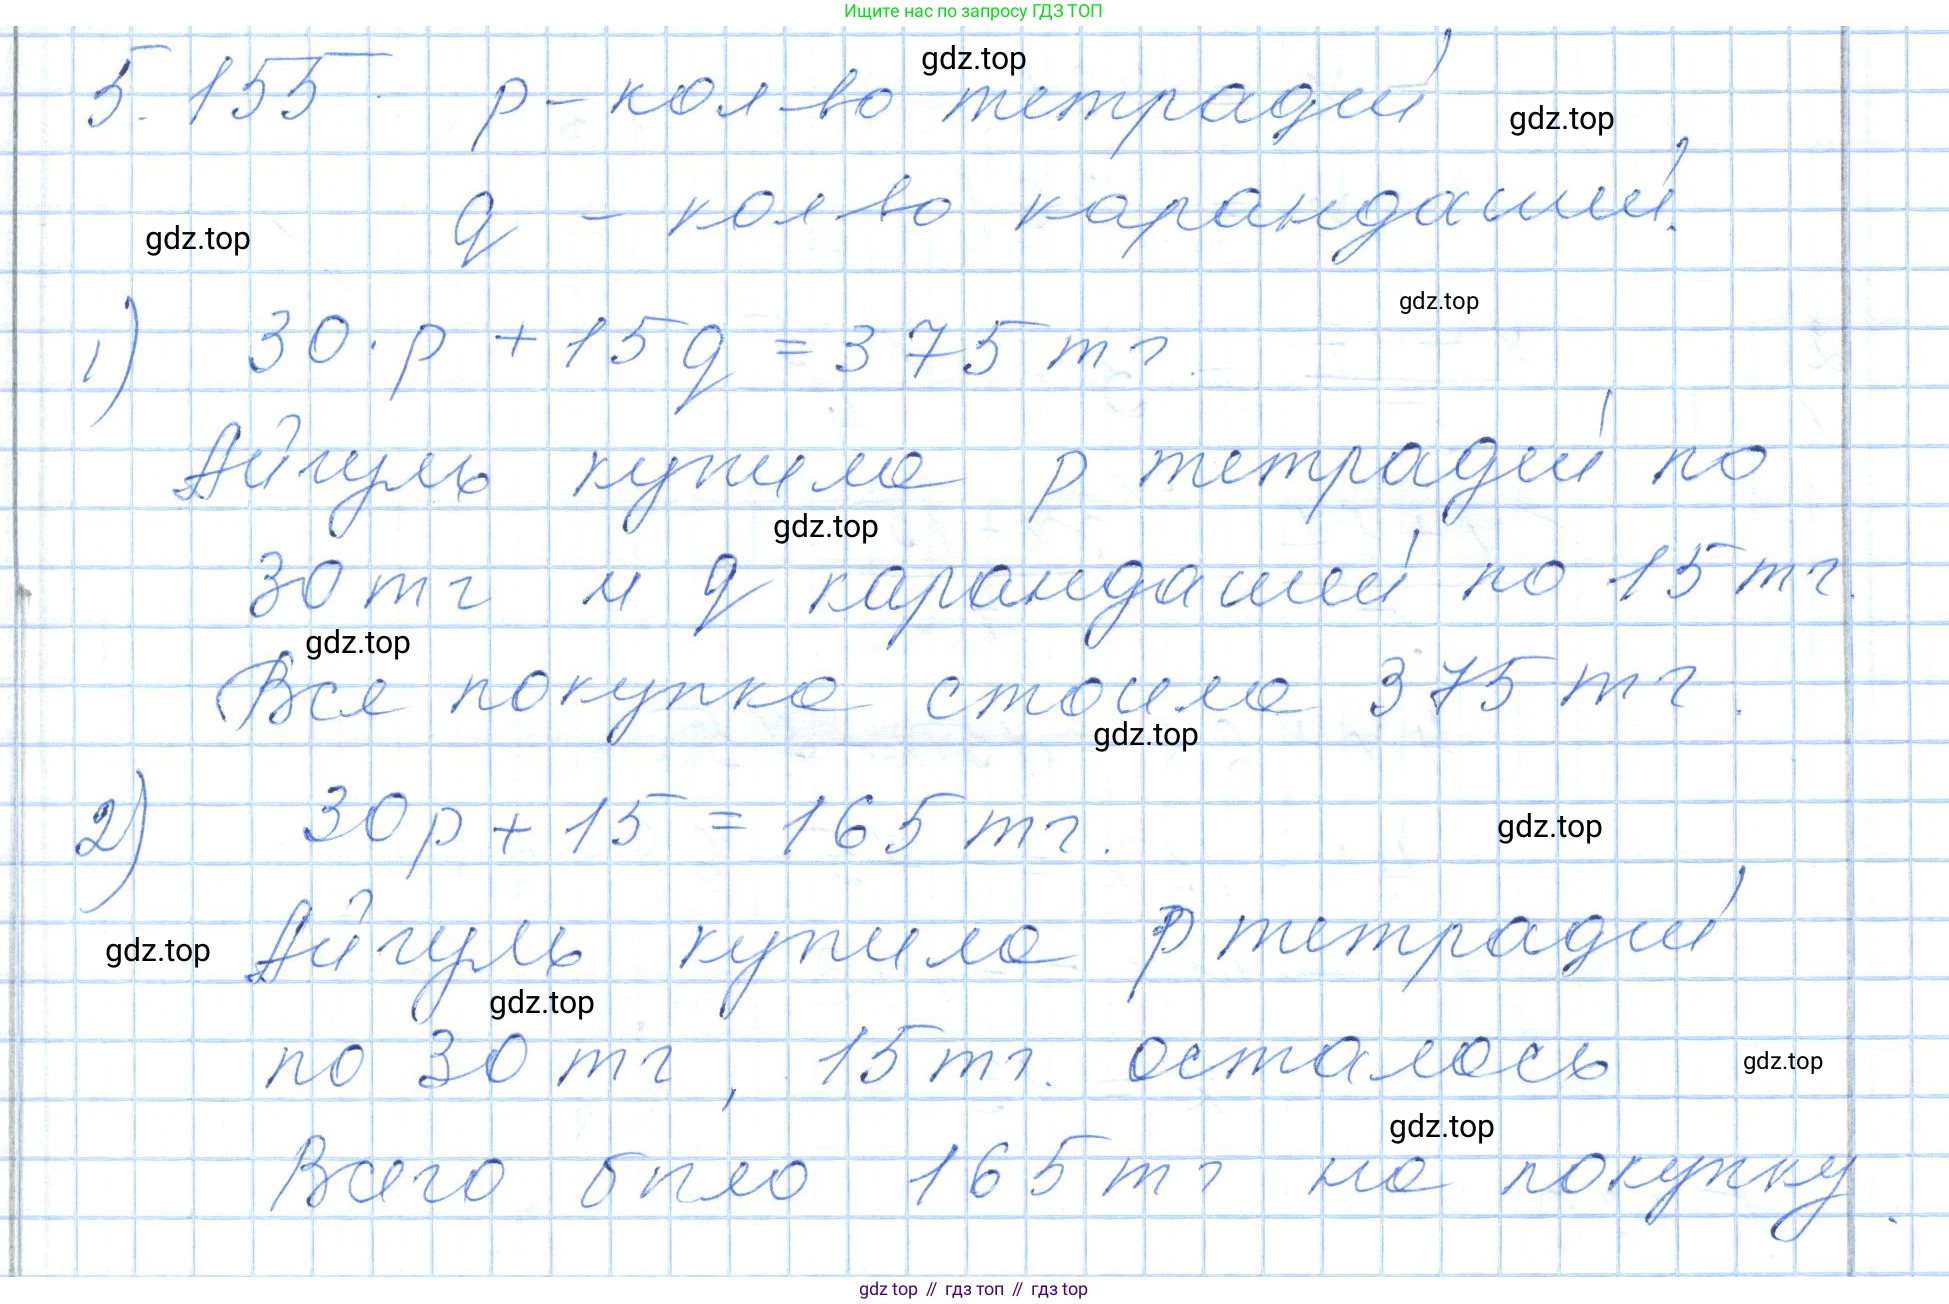 Ищите нас по запросу ГДЗ ТОП
5.155. p - кол-во тетрадей
gdz.top
gdz.top
q - кол-во карандашей.
gdz.top
1) 30·p + 15q = 375 тг.
gdz.top
Айгуль купила p тетрадей по
gdz.top
30 тг и q карандашей по 15 тг.
gdz.top
Вся покупка стоила 375 тг.
gdz.top
2) 30p + 15 = 165 тг.
gdz.top
Айгуль купила p тетрадей
gdz.top
gdz.top
по 30 тг, 15 тг. осталось
gdz.top
gdz.top
Всего было 165 тг на покупку.
gdz top // гдз топ // гдз top